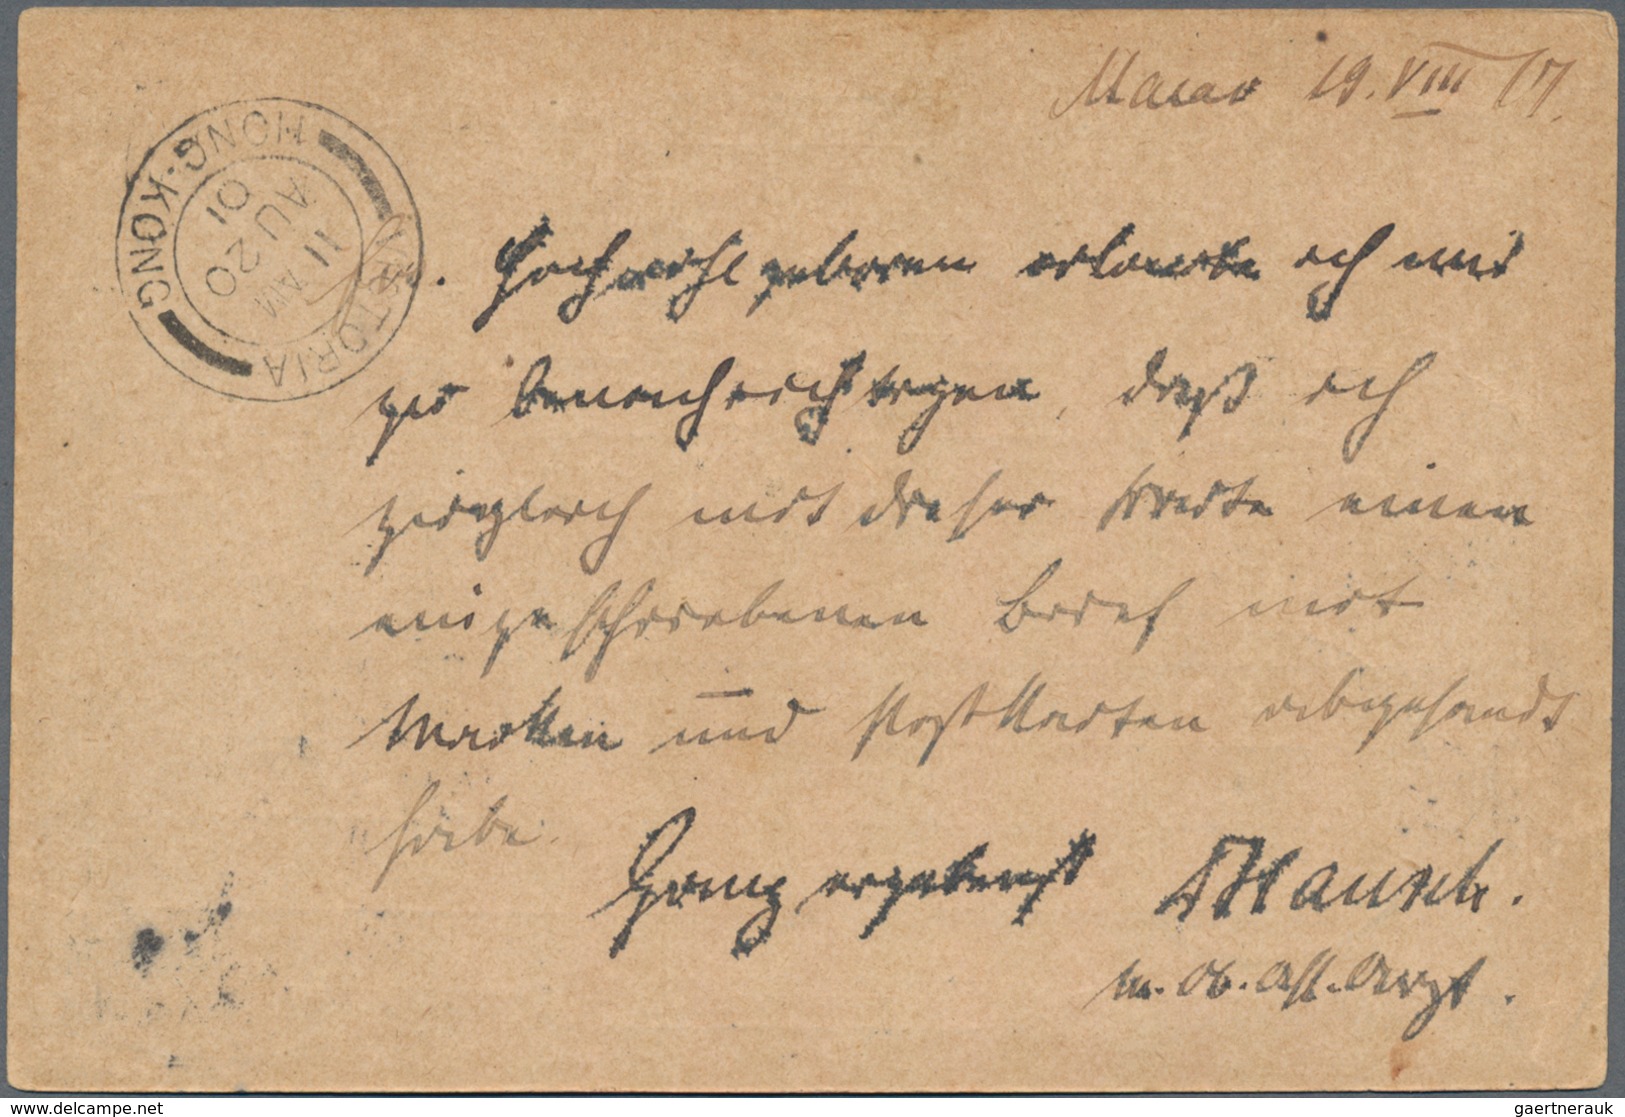 Macao 19. VIII
VICTORIA
HONG·KONG
11 AM
AU 20
01
Hochwohlgeboren erlaube ich mir
zu benachrichtigen, daß ich
zugleich mit dieser Karte einen
eingeschriebenen Brief mit
Marken und Postkarten abgesandt
habe.
Ganz ergebenst
M. Ob. Ass. Arzt.
www.delcampe.net
gaertnerauk